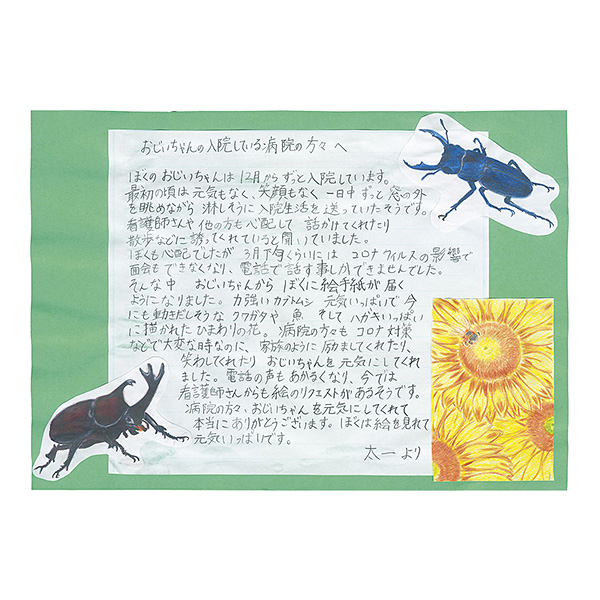 おじいちゃんの入院している病院の方々へ
ぼくのおじいちゃんは12月からずっと入院しています。
最初の頃は元気もなく、笑顔もなく一日中ずっと窓の外
を眺めながら淋しそうに入院生活を送っていたそうです。
看護師さんや他の方も心配して話かけてくれたり
散歩などに誘ってくれていると聞いていました。
ぼくも心配でしたが3月下旬くらいにはコロナウイルスの影響で
面会もできなくなり、電話で話す事しかできませんでした。
そんな中おじいちゃんからぼくに絵手紙が届く
ようになりました。力強いカブトムシ元気いっぱいで今
にも動きだしそうなクワガタや魚そしてハガキいっぱい
に描かれたひまわりの花。病院の方々もコロナ対策
などで大変な時なのに、家族のように励ましてくれたり、
笑わしてくれたりおじいちゃんを元気にしてくれ
ました。電話の声もあかるくなり、今では
看護師さんからも絵のリクエストがあるそうです。
病院の方々、おじいちゃんを元気にしてくれて
本当にありがとうございます。ぼくは絵を見れて
元気いっぱいです。
太一より